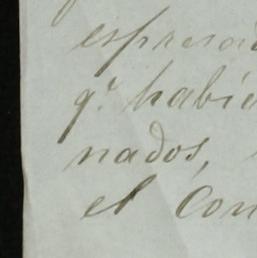 espresad
q.e habia
nados,
el Con